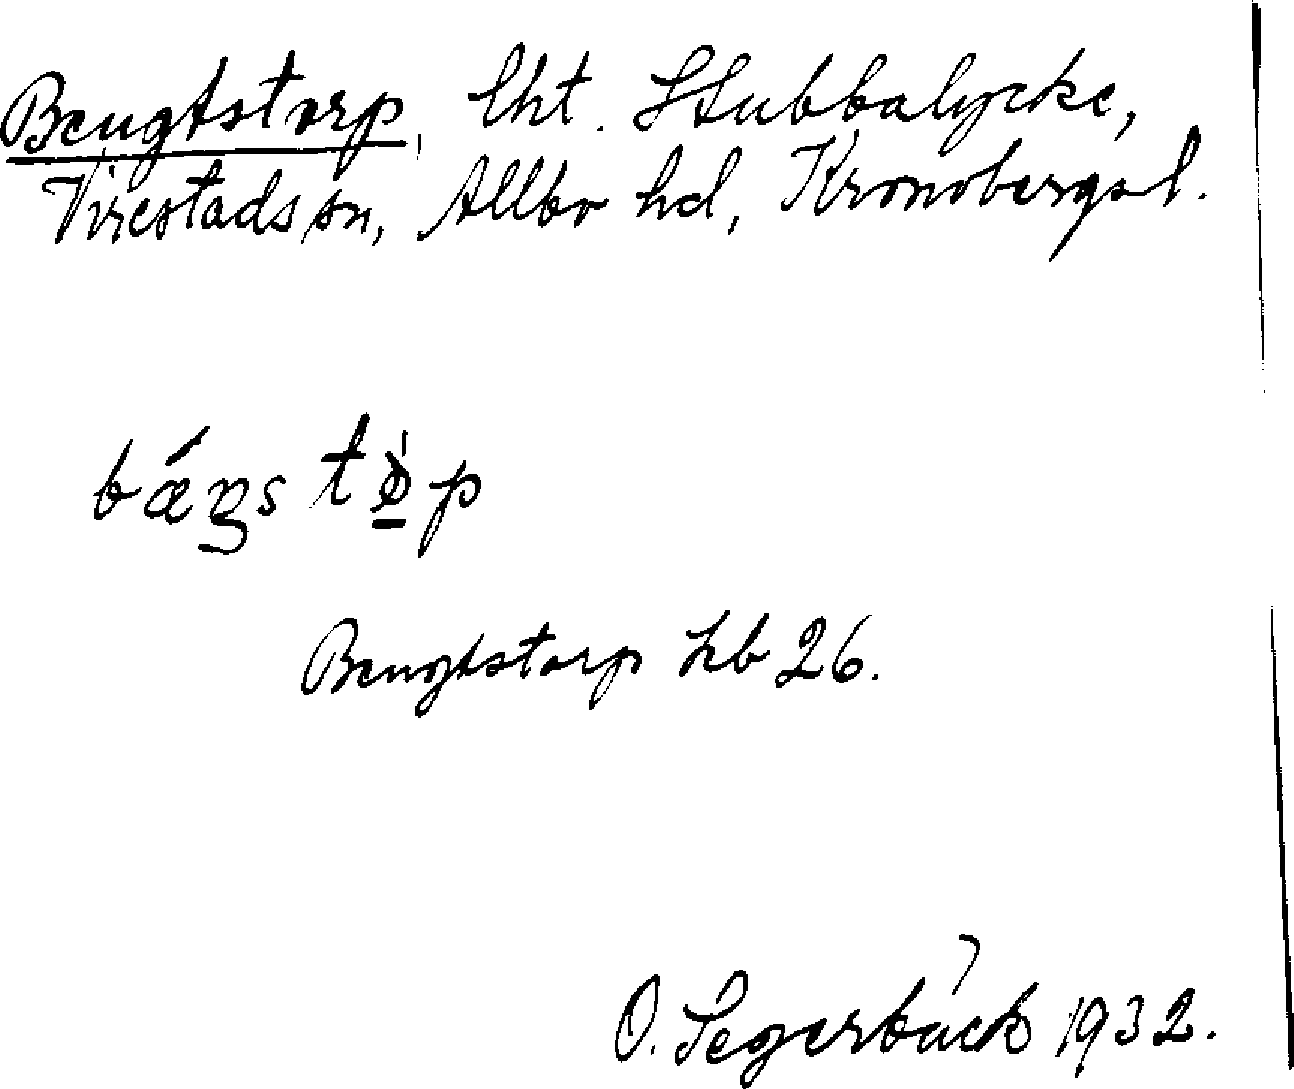 Bengtstorp, lht. Stubbalycke,
Virestads sn, Allbo hd, Kronobergs l.
bǽŋs tø̀p
Bengtstorp hb 26.
O. Segerbäck 1932.